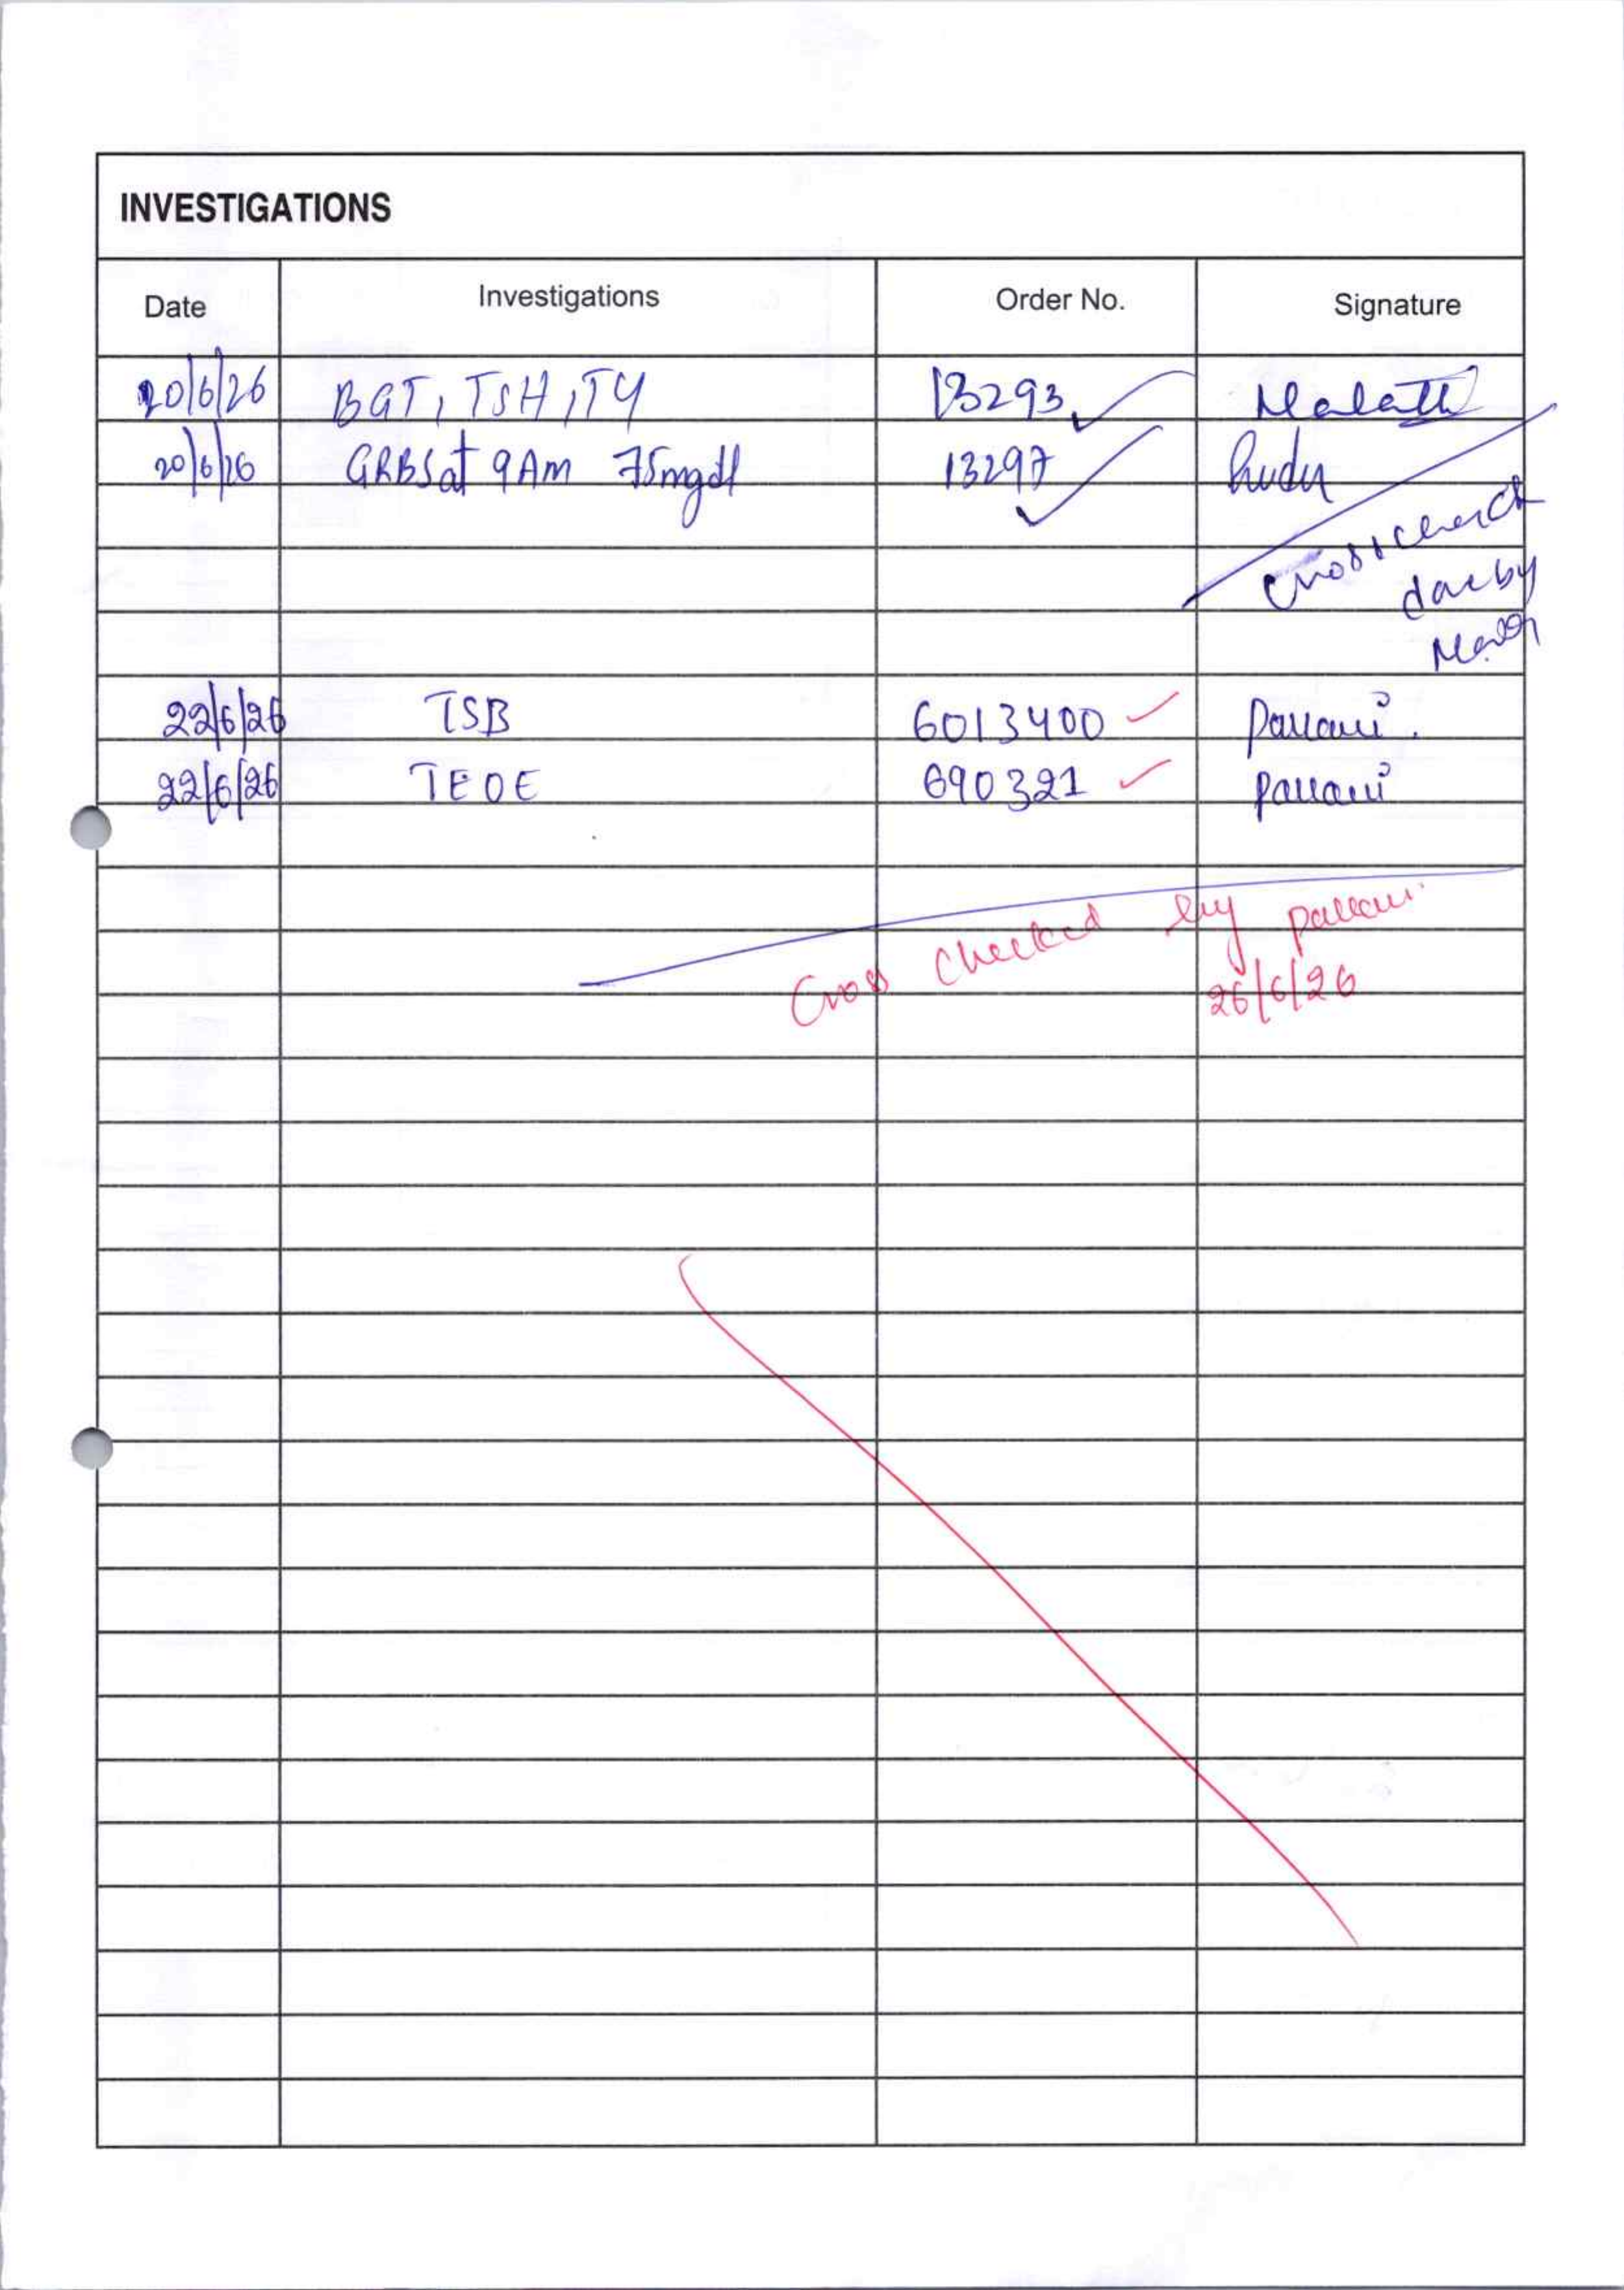 INVESTIGATIONS
Date Investigations Order No. Signature
20/6/26 BGT, TSH, T4 13293 Malathi
20/6/26 GRBS at 9AM 75mgdl 13297
Cross check
done by
22/6/26 TSB 6013400 Pallavi.
22/6/26 TEOE 690321 Pallavi
Cross Checked by Pallavi
26/6/26